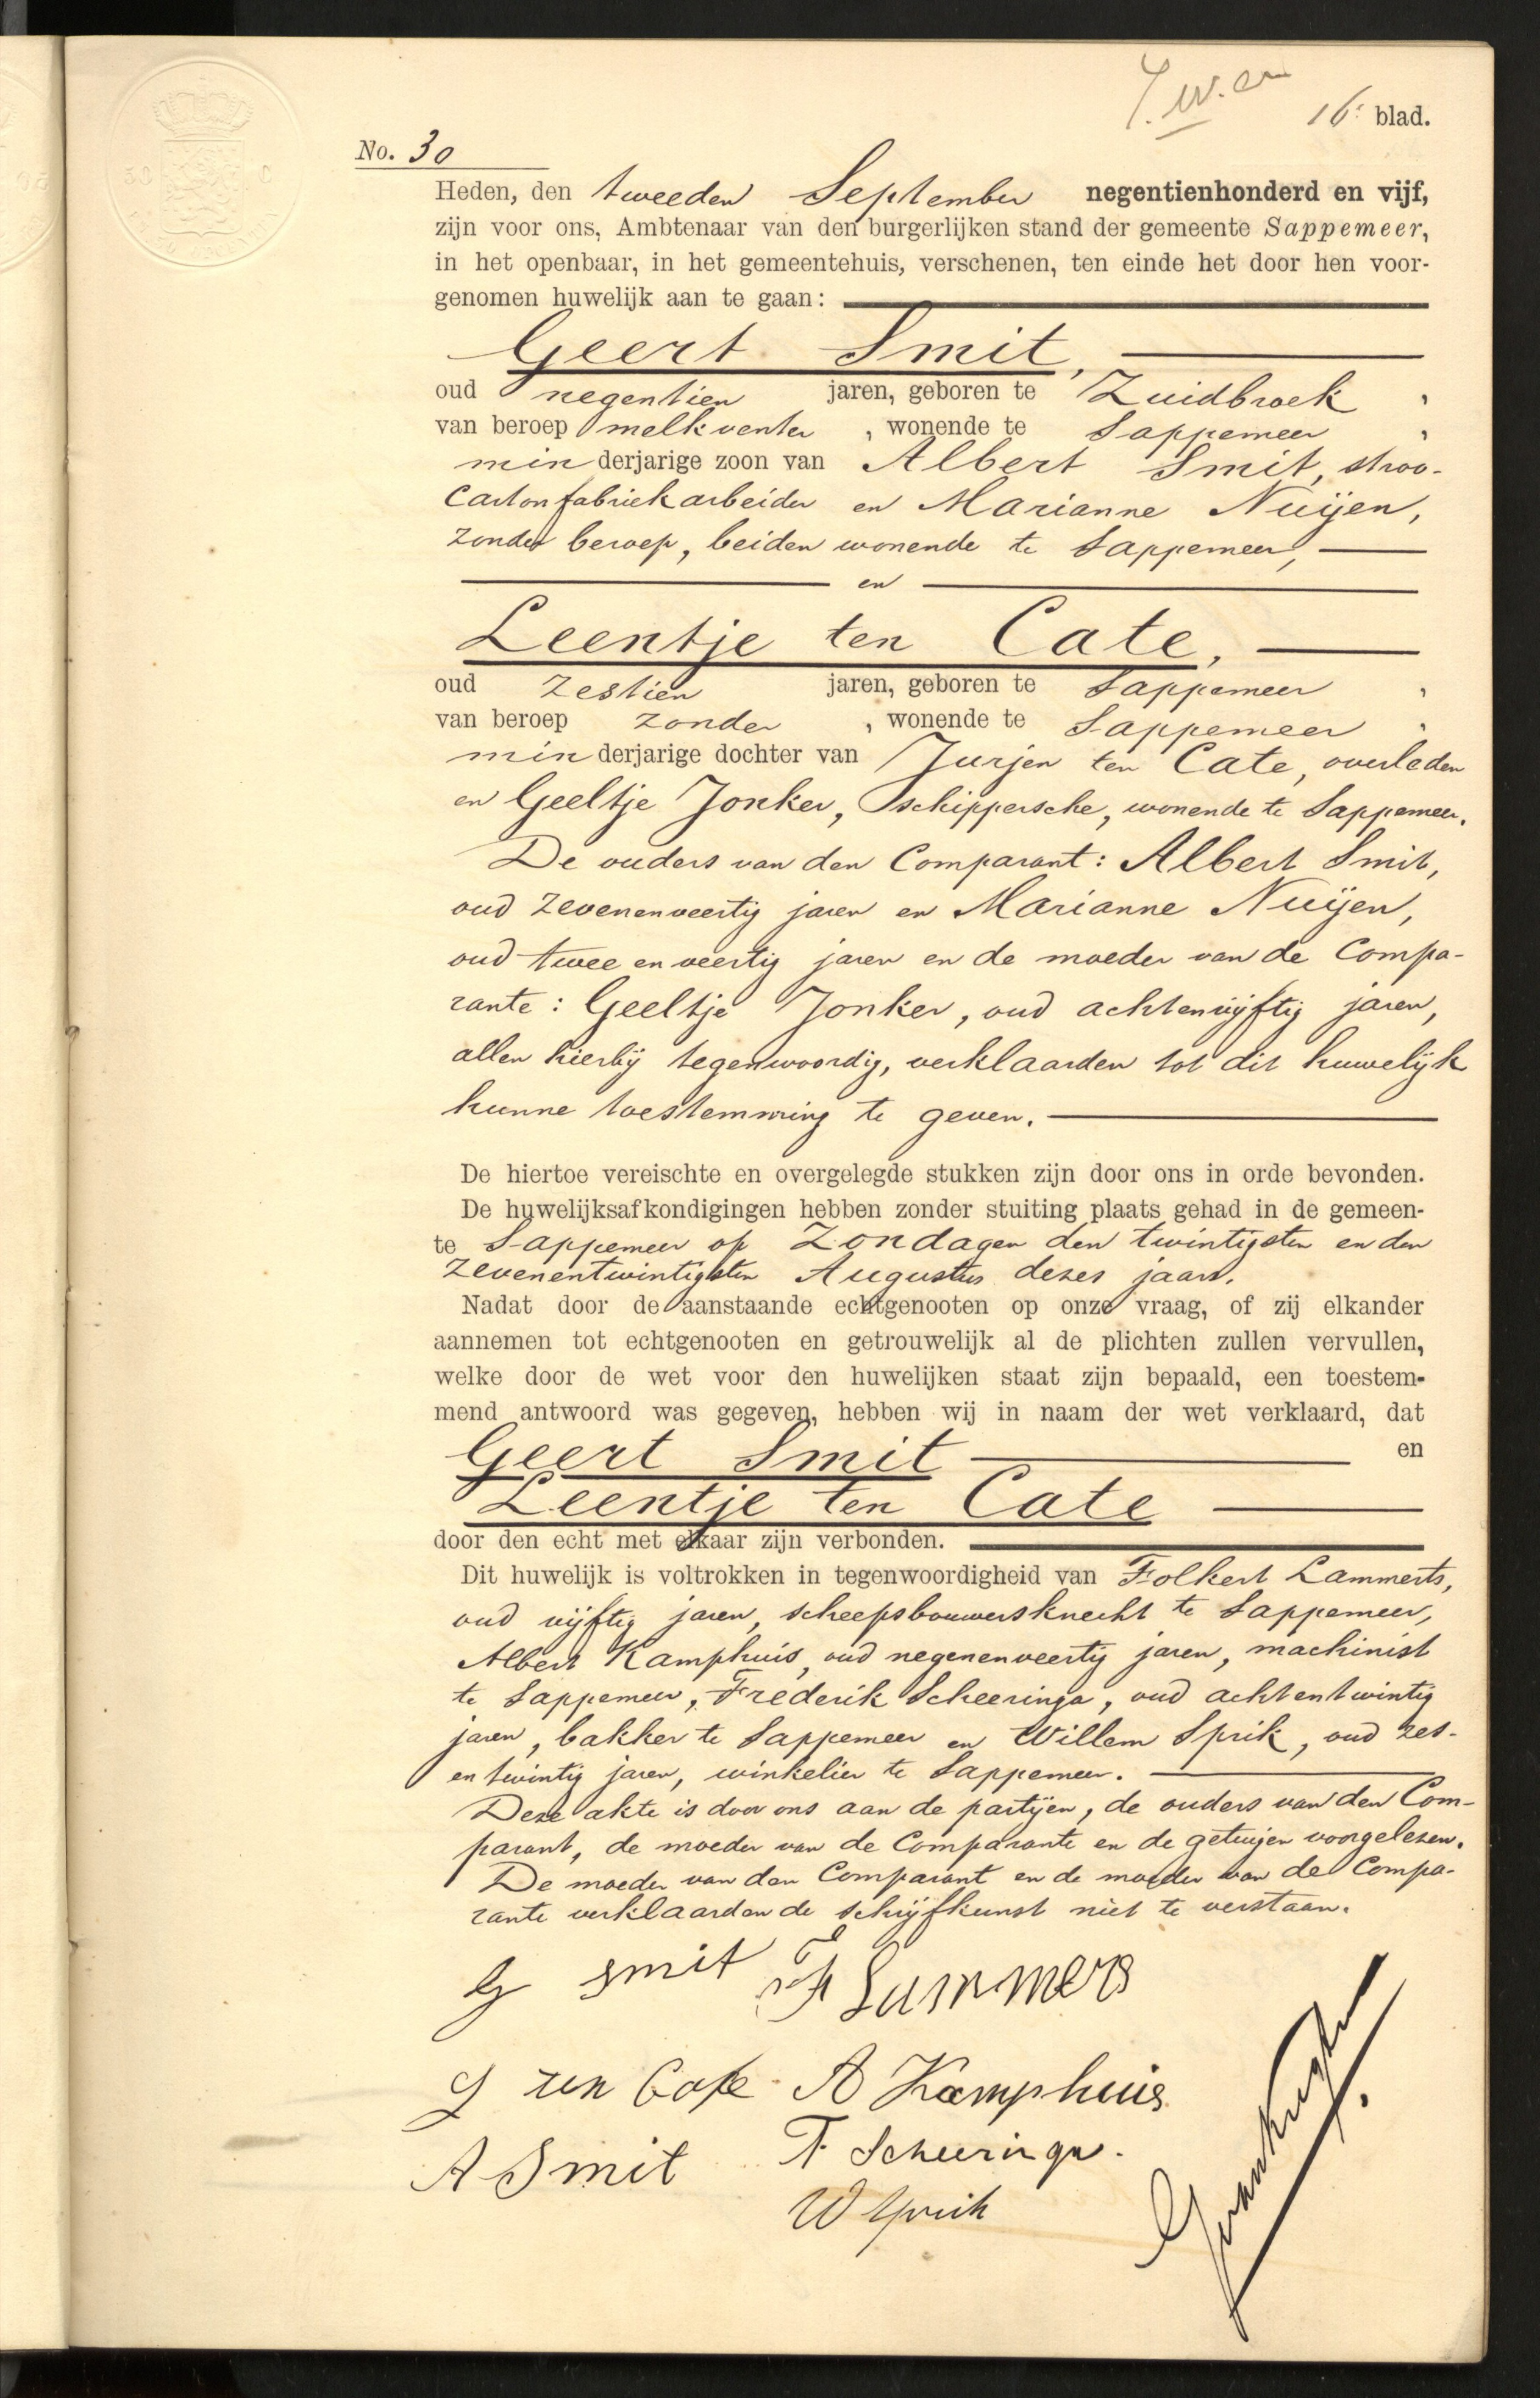 16e blad.
No. 30
Heden, den tweeden September negentienhonderd en vijf,
zijn voor ons, Ambtenaar van den burgerlijken stand der gemeente Sappemeer,
in het openbaar, in het gemeentehuis, verschenen, ten einde het door hen voor-
genomen huwelijk aan te gaan:
Geert Smit,
oud negentien jaren, geboren te Zuidbroek,
van beroep melkventer, wonende te Sappemeer,
minderjarige zoon van Albert Smit, stroo-
cartonfabriekarbeider en Marianne Nuijen,
zonder beroep, beiden wonende te Sappemeer,
en
Leentje ten Cate,
oud zestien jaren, geboren te Sappemeer,
van beroep zonder, wonende te Sappemeer,
minderjarige dochter van Jurjen ten Cate, overleden
en Geeltje Jonker, schippersche, wonende te Sappemeer.
De ouders van den Comparant: Albert Smit,
oud zevenenveertig jaren en Marianne Nuijen,
oud twee en veertig jaren en de moeder van de Compa-
rante: Geeltje Jonker, oud achtenvijftig jaren,
allen hierbij tegenwoordig, verklaarden tot dit huwelijk
hunne toestemming te geven.
De hiertoe vereischte en overgelegde stukken zijn door ons in orde bevonden.
De huwelijksafkondigingen hebben zonder stuiting plaats gehad in de gemeen-
te Sappemeer op Zondagen den twintigsten en den
zevenentwintigsten Augustus dezes jaars.
Nadat door de aanstaande echtgenooten op onze vraag, of zij elkander
aannemen tot echtgenooten en getrouwelijk al de plichten zullen vervullen,
welke door de wet voor den huwelijken staat zijn bepaald, een toestem-
mend antwoord was gegeven, hebben wij in naam der wet verklaard, dat
Geert Smit en
Leentje ten Cate
door den echt met elkaar zijn verbonden.
Dit huwelijk is voltrokken in tegenwoordigheid van Folkert Lammerts,
oud vijftig jaren, scheepsbouwersknecht te Sappemeer,
Albert Kamphuis, oud negenenveertig jaren, machinist
te Sappemeer, Frederik Scheeringa, oud achtentwintig
jaren, bakker te Sappemeer en Willem Sprik, oud zes-
entwintig jaren, winkelier te Sappemeer.
Deze akte is door ons aan de partijen, de ouders van den Com-
parant, de moeder van de Comparante en de getuigen voorgelezen.
De moeder van den Comparant en de moeder van de Compa-
rante verklaarden de schrijfkunst niet te verstaan.
G smit
F Lammers
ten Cate
A Kamphuis
A Smit
F Scheeringa.
W Sprik